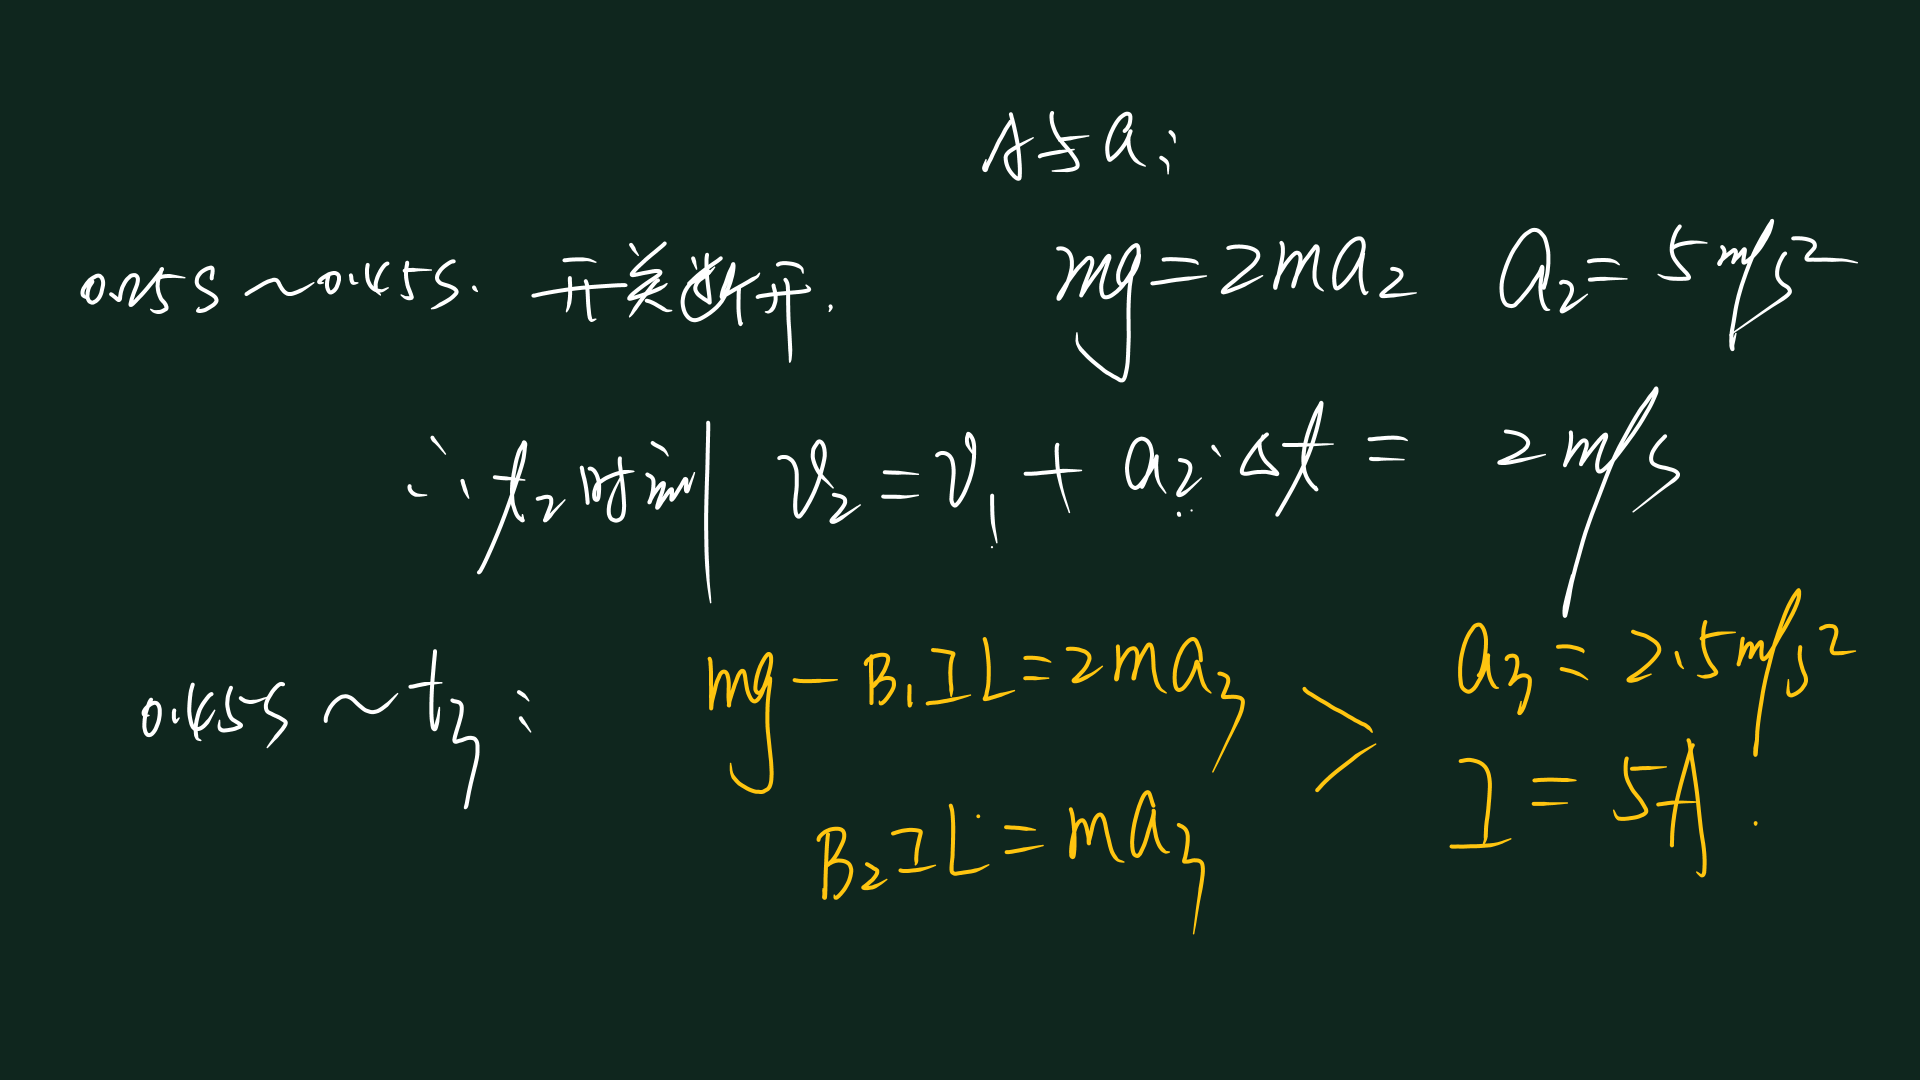 A与a:
0.25s ~ 0.45s. 开关断开. mg = 2ma₂ a₂ = 5m/s²
∴ t₂时刻 v₂ = v₁ + a₂·Δt = 2m/s
0.45s ~ t₃: mg - B₁IL = 2ma₃ > a₃ = 2.5m/s²
B₂IL = ma₃ I = 5A.